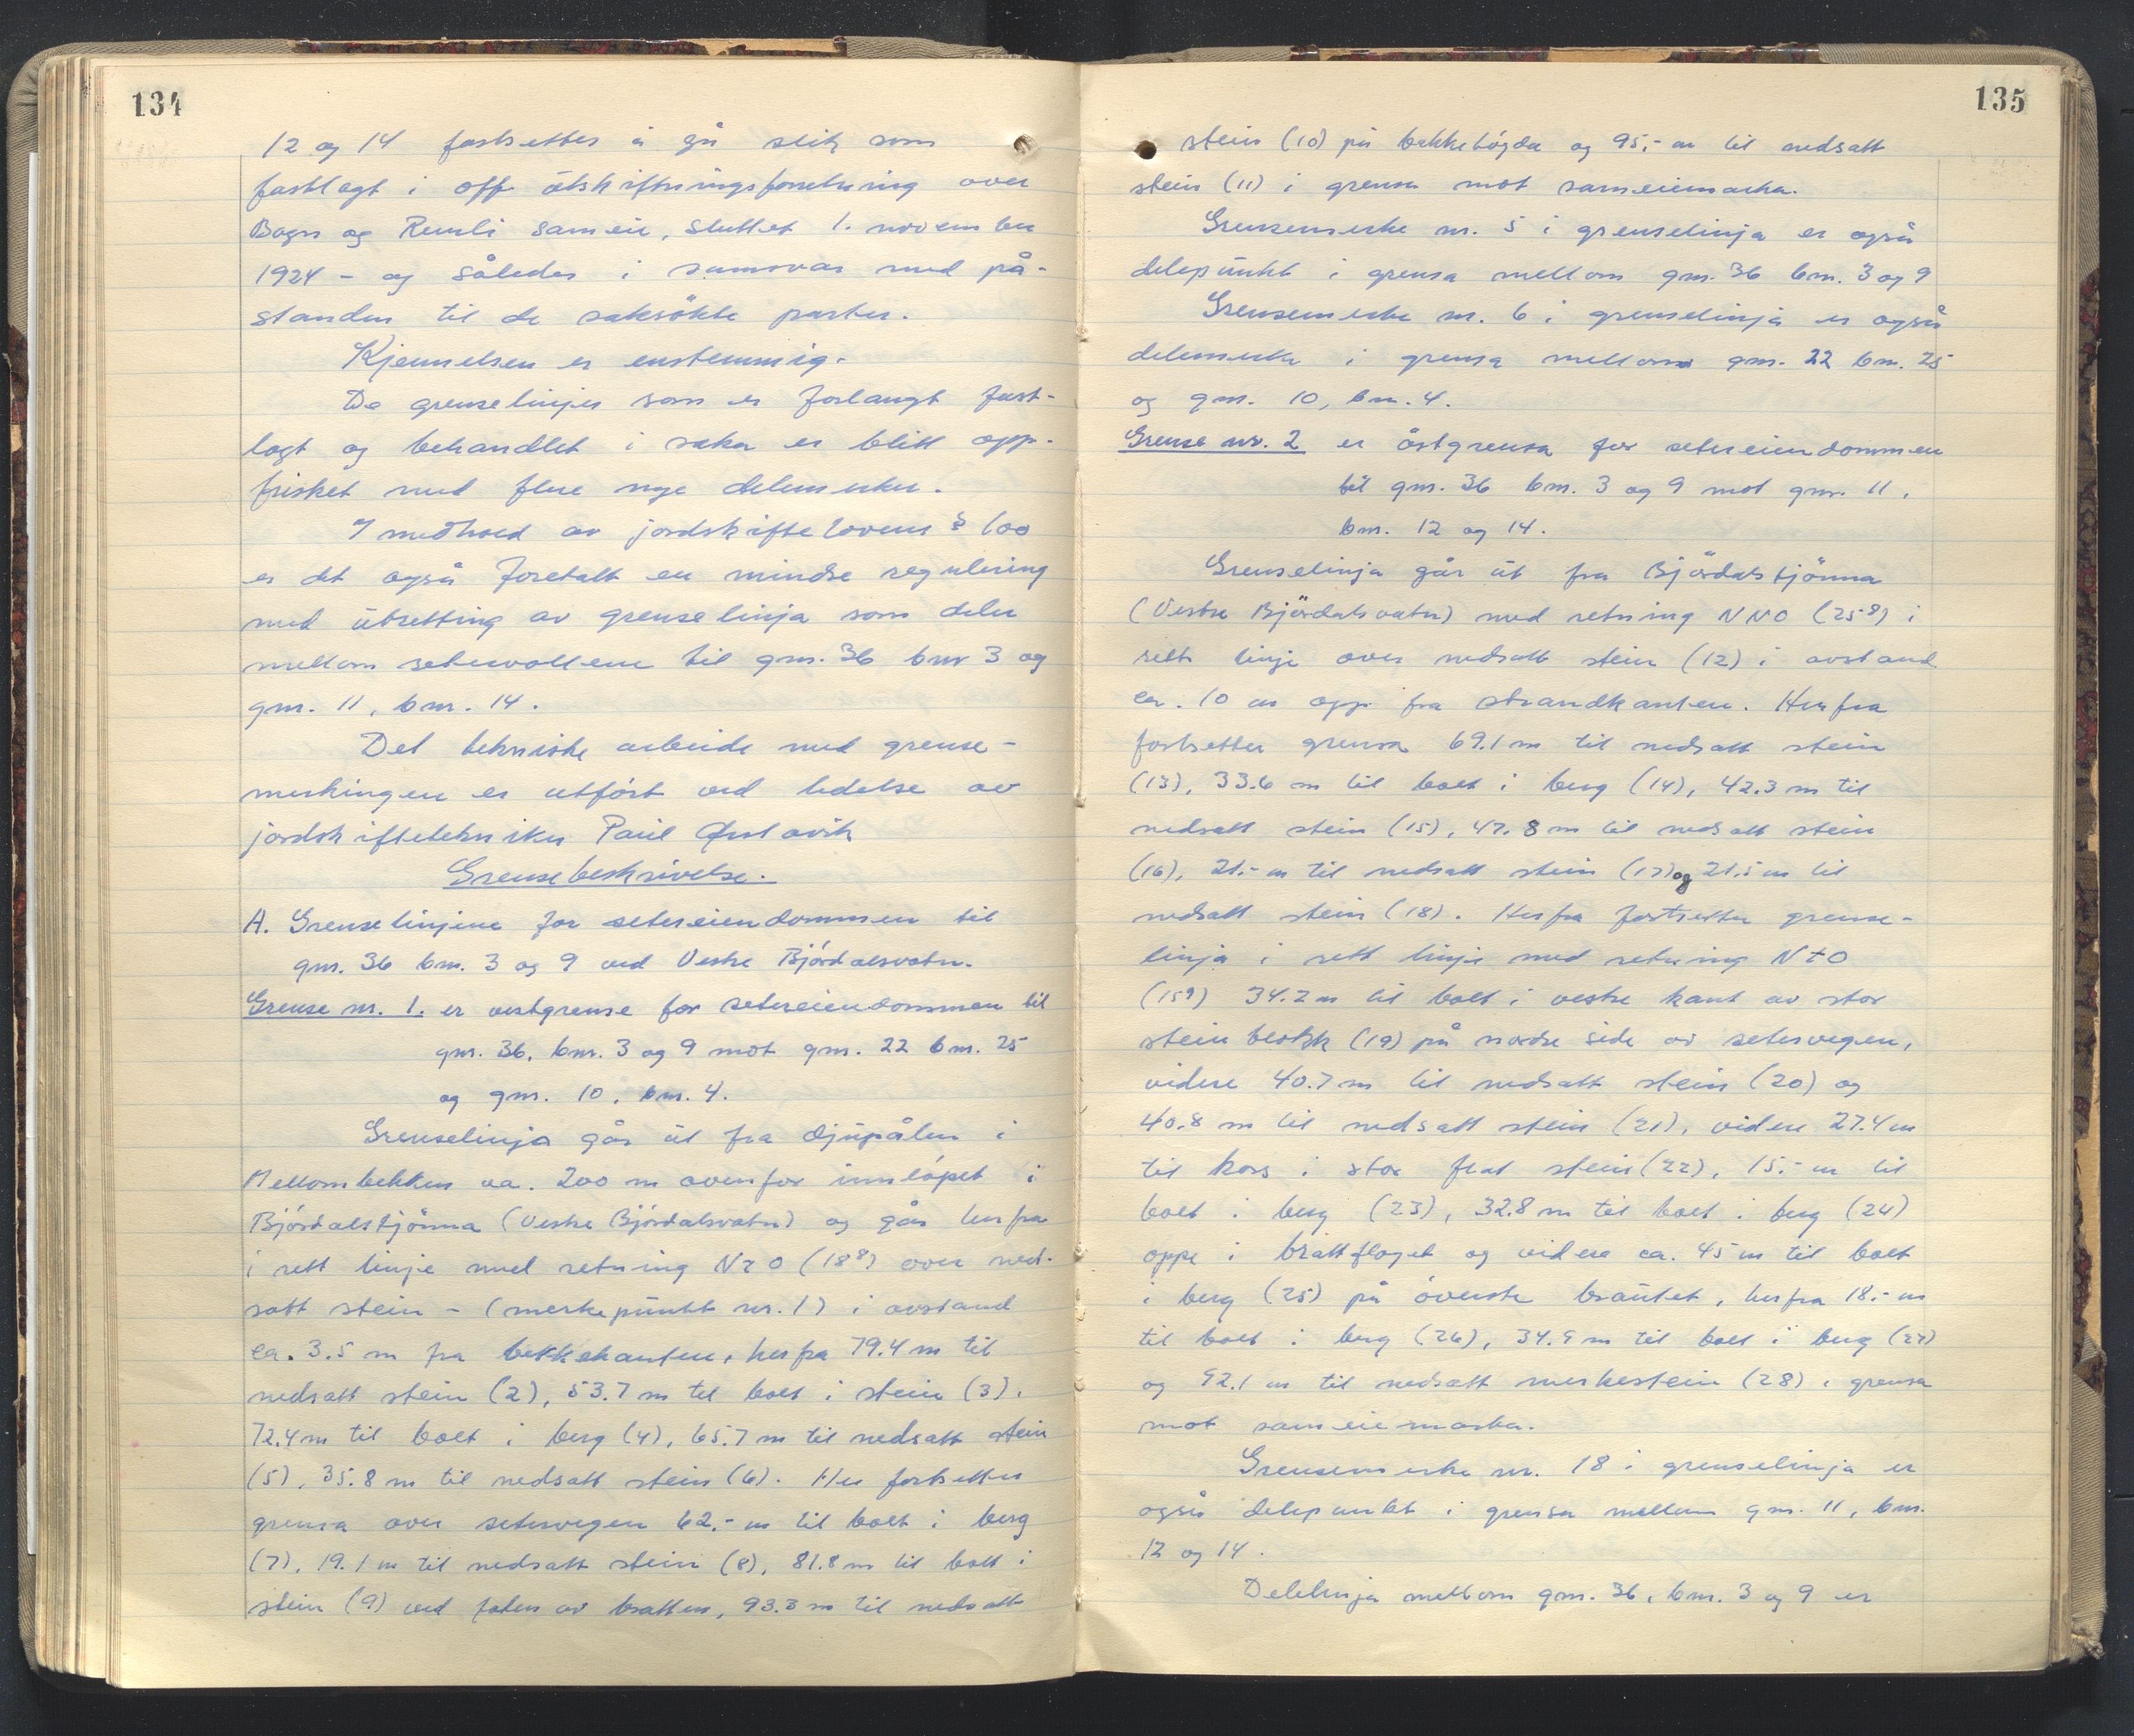 134
12 og 14 fortsetter å gå slik som
fastlagt i off utskiftningsforretning over
Bagn og Reinli sameie, sluttet 1. november
1924 - og således i samsvar med på-
standen til de saksökte parter.
Kjennelsen er enstemmig.
De grenselinjer som er forlangt fast-
lagt og behandlet i saka er blitt opp-
frisket med flere nye delemerker.
I medhold av jordskiftelovens § 100
er det også foretatt en mindre regulering
med utretting av grenselinja som deler
mellom setervollene til gnr. 36 bnr 3 og
gnr. 11, bnr. 14.
Det tekniske arbeide med grense-
merkingen er utfört ved ledelse av
jordskiftetekniker Paul
Grensebeskrivelse.
A. Grenselinjene for setereiendommen til
gnr. 36 bnr. 3 og 9 ved Vestre Björdalsvatn.
Grense nr. 1. er vestgrense for setereiendommen til
gnr. 36, bnr. 3 og 9 mot gnr. 22 bnr. 25
og gnr. 10, bnr. 4.
Grenselinja går ut fra djupålen i
Mellombekken ca. 200 m ovenfor innlöpet i
Björdalstjönna (Vestre Björdalsvatn) og går herfra
i rett linje med retning NzO (18⁸) over ned-
satt stein - (merkepunkt nr. 1) i avstand
ca. 3.5 m fra bekkekanten, herfra 79.4 m til
nedsatt stein (2), 53.7 m til bolt i stein (3),
72.4 m til bolt i berg (4), 65.7 m til nedsatt stein
(5), 35.8 m til nedsatt stein (6). Her fortsetter
grensa over setervegen 62.- m til bolt i berg
(7), 19.1 m til nedsatt stein (8), 81.8 m til bolt i
stein (9) ved foten av bratten, 93.3 m til nedsatt
135
stein (10) på bakkehögda og 95,- m til nedsatt
stein (11) i grensa mot sameiemarka.
Grensemerke nr. 5 i grenselinja er også
delepunkt i grensa mellom gnr. 36 bnr. 3 og 9
Grensemerke nr. 6 i grenselinja er også
delemerke i grensa mellom gnr. 22 bnr. 25
og gnr. 10, bnr. 4.
Grense nr. 2 er östgrensa for setereiendommen
til gnr. 36 bnr. 3 og 9 mot gnr. 11,
bnr. 12 og 14.
Grenselinja går ut fra Björdalstjönna
(Vestre Björdalsvatn) med retning NNO (25⁹) i
rett linje over nedsatt stein (12) i avstand
ca. 10 m opp fra strandkanten. Herfra
fortsetter grensa 69.1 m til nedsatt stein
(13), 33.6 m til bolt i berg (14), 42.3 m til
nedsatt stein (15), 47.8 m til nedsatt stein
(16), 21.- m til nedsatt stein (17) og 21.5 m til
nedsatt stein (18). Herfra fortsetter grense-
linja i rett linje med retning NtO
(15⁹) 34.2 m til bolt i vestre kant av stor
steinblokk (19) på nordre side av setervegen,
videre 40.7 m til nedsatt stein (20) og
40.8 m til nedsatt stein (21), videre 27.4 m
til kors i stor flat stein (22), 15.- m til
bolt i berg (23), 32.8 m til bolt i berg (24)
oppe i brattfloget og videre ca. 45 m til bolt
i berg (25) på överste brautet, herfra 18.- m
til bolt i berg (26), 34.9 m til bolt i berg (27)
og 92.1 m til nedsatt merkestein (28) i grensa
mot sameiemarka.
Grensemerke nr. 18 i grenselinja er
også delepunkt i grensa mellom gnr. 11, bnr.
12 og 14.
Delelinja mellom gnr. 36, bnr. 3 og 9 er